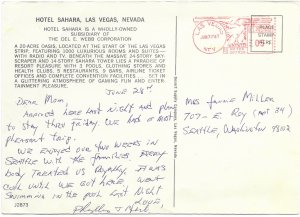 HOTEL SAHARA, LAS VEGAS, NEVADA
HOTEL SAHARA IS A WHOLLY-OWNED
SUBSIDIARY OF
THE DEL E. WEBB CORPORATION
A 20 ACRE OASIS, LOCATED AT THE START OF THE LAS VEGAS
STRIP, FEATURING 1000 LUXURIOUS ROOMS AND SUITES —
WITH THE BIG VALUE! BENEATH THE MASSIVE 24-STORY SKY-
SCRAPER AND 14-STORY SAHARA TOWER LIES A PARADISE OF
RESORT PLEASURE WITH 2 POOLS, CLOTHING STORES AND
HEALTH CLUBS, 5 RESTAURANTS, 9 BARS, AIRLINE TICKET
OFFICES AND COMPLETE CONVENTION FACILITIES . . . SET IN
A GLITTERING ATMOSPHERE OF GAMING FUN AND ENTER-
TAINMENT PLEASURE.
JUNE 28th
DEAR MOM,
ARRIVED HERE LAST NIGHT AND PLAN
TO STAY THRU FRIDAY. WE HAD A MOST
PLEASANT TRIP.
WE ENJOYED OUR TWO WEEKS IN
SEATTLE WITH THE FAMILIES. EVERY
BODY TREATED US ROYALLY. IT WAS
COOL UNTIL WE GOT HERE. WENT
SWIMMING IN THE POOL LAST NIGHT
LOVE,
Phyllis &
J2873
U.S. POSTAGE
MRS FANNIE MILLER
707 - E. ROY (APT 34)
SEATTLE, WASHINGTON 98102